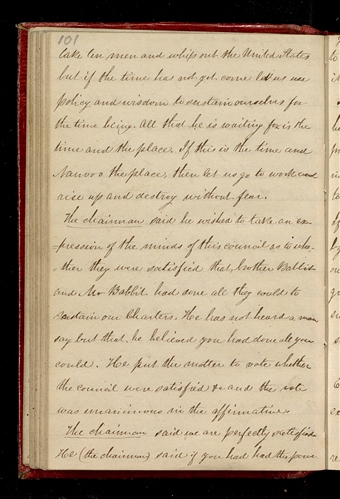 101
take ten men and whip out the United States
but if the time has not yet come let us use
policy and wisdom to sustain ourselves for
the time being. All that he is waiting for is the
time and the place. If this is the time and
Nauvoo the place, then let us go to work and
rise up and destroy without fear.
The chairman said he wished to take an ex-
pression of the minds of this council as to whe-
ther they were satisfied that, brother Babbit
and Mr Babbit had done all they could to
sustain our Charters. He has not heard a man
say but that he believed you had done all you
could. He put the matter to vote whether
the council were satisfied &c and the vote
was unanimous in the affirmative.
The chairman said we are perfectly satisfied.
He (the chairman) said if you had had the powe